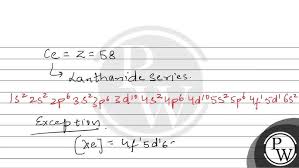 Ce = Z = 58
↳ Lanthanide series.
1s² 2s² 2p⁶ 3s² 3p⁶ 3d¹⁰ 4s² 4p⁶ 4d¹⁰ 5s² 5p⁶ 4f¹ 5d¹ 6s²
Exception
[xe] = 4f¹ 5d¹ 6